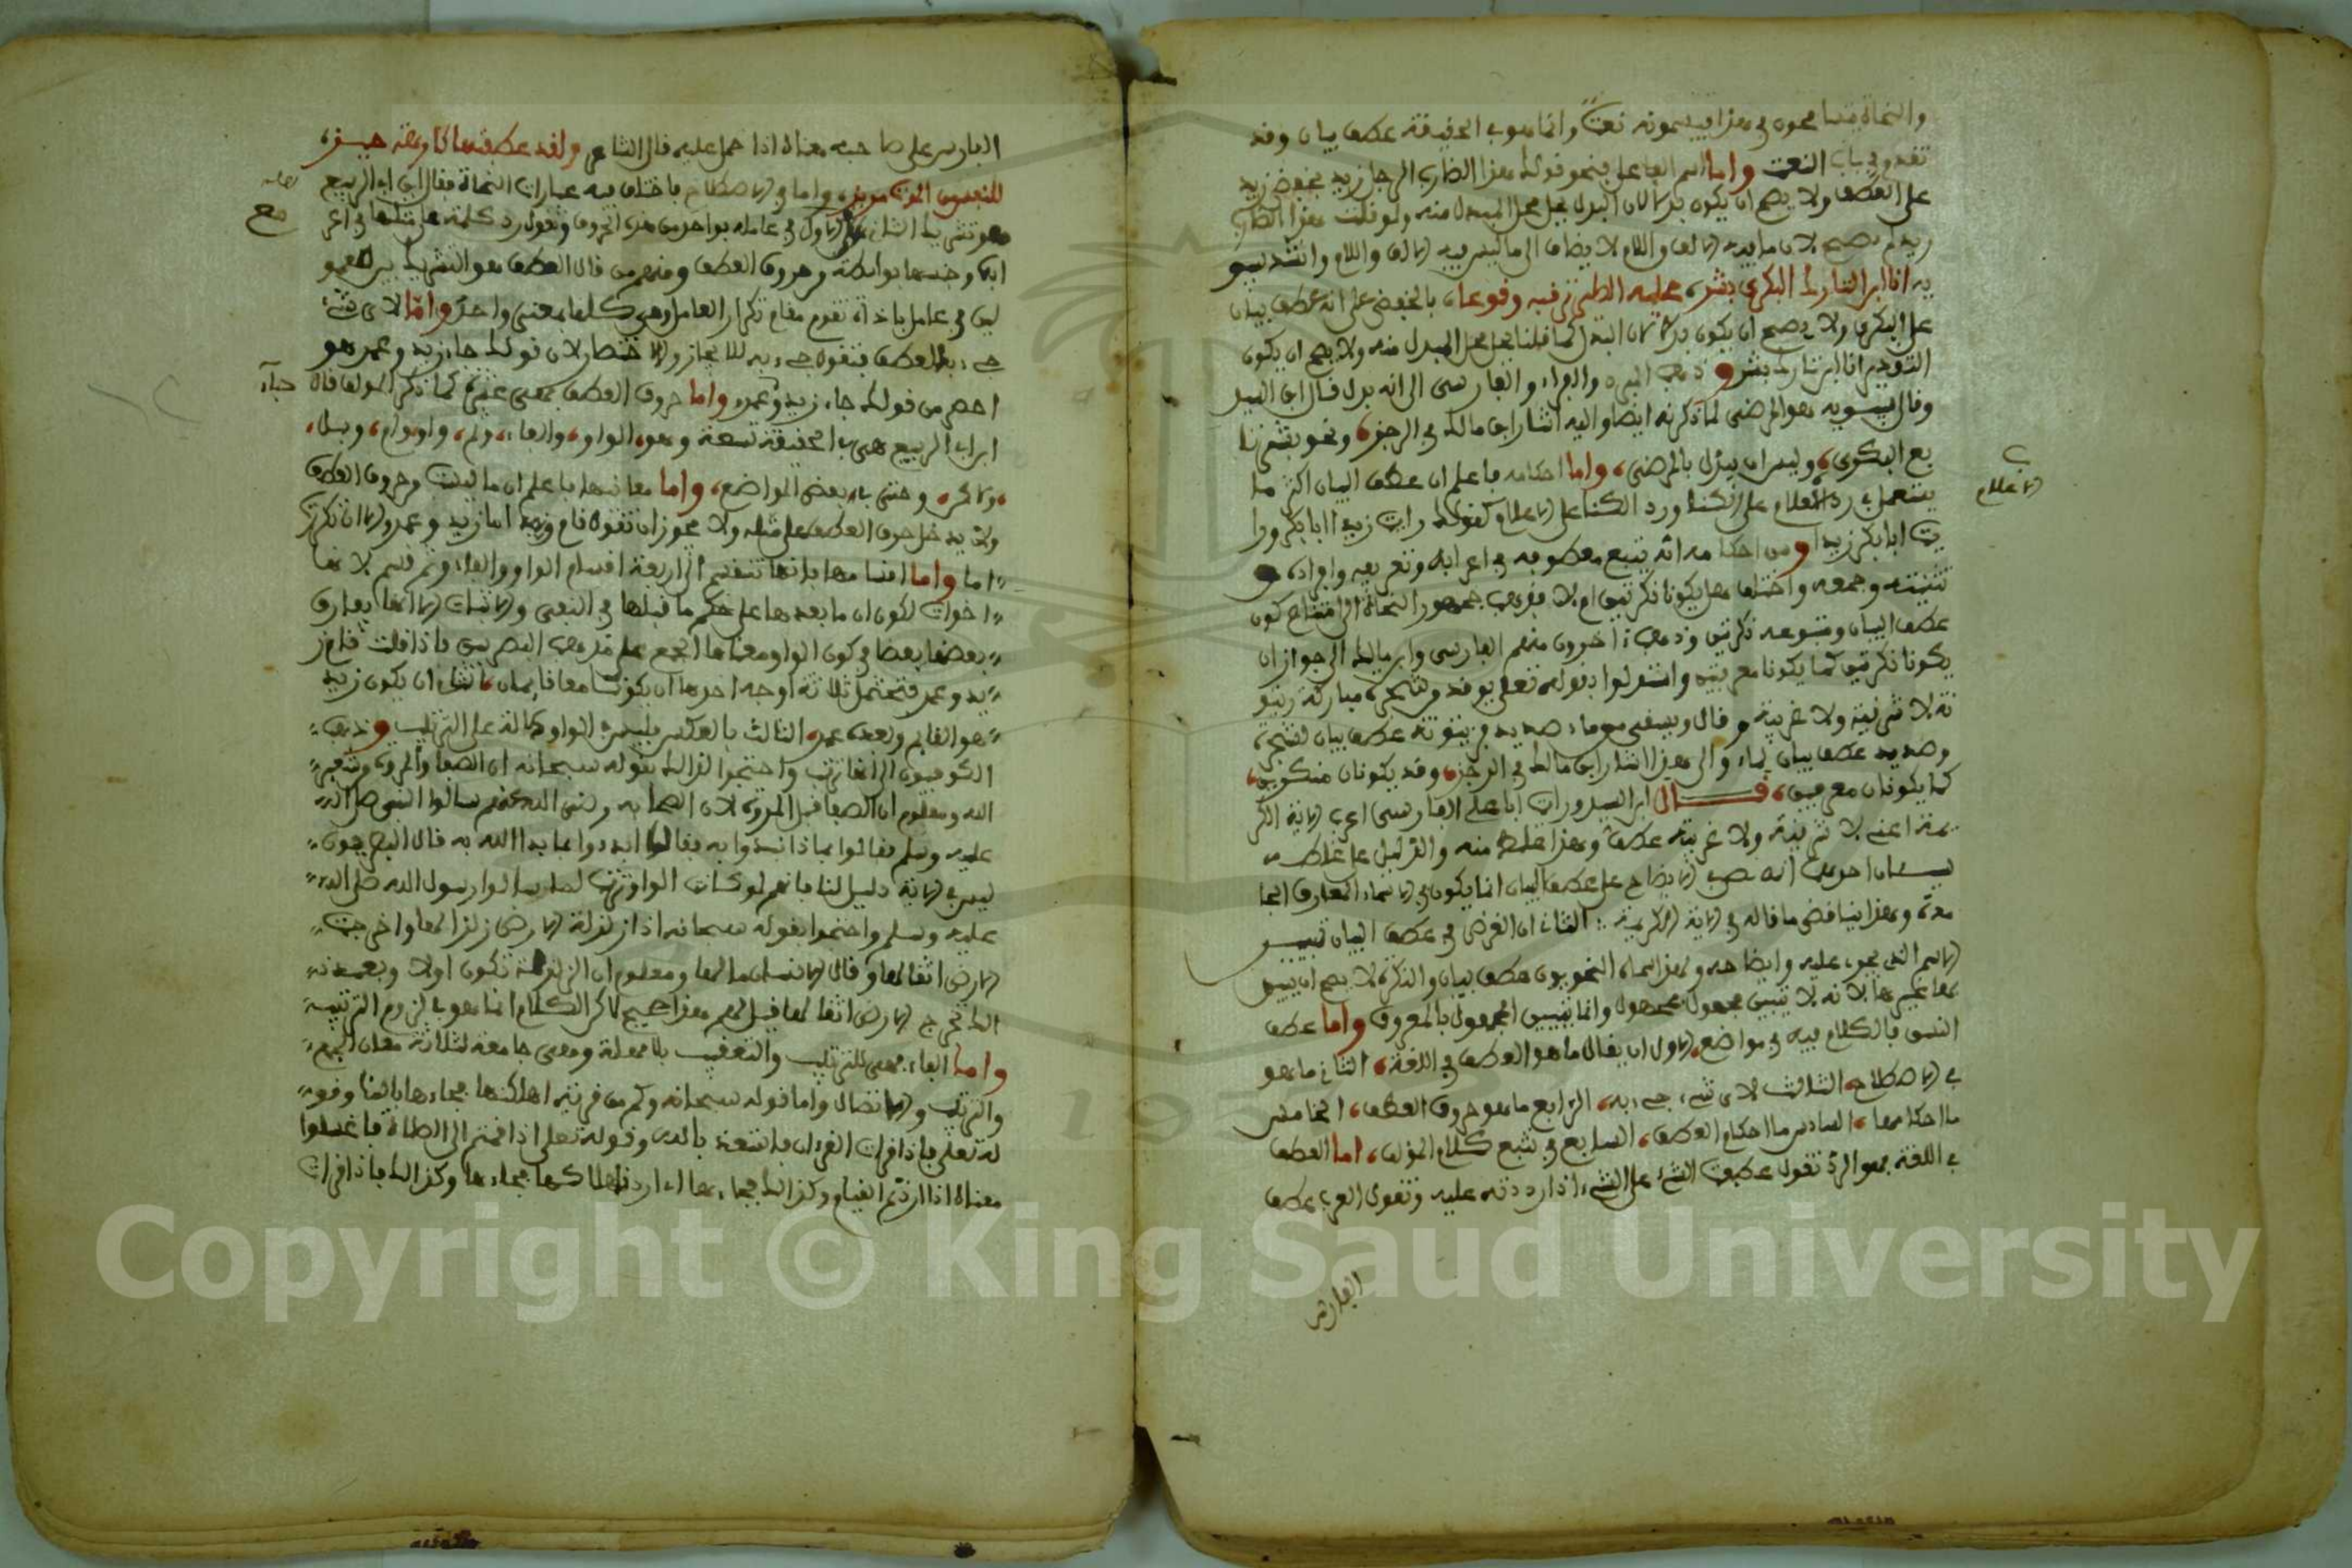 والنحاة يتسامحون في هذا فيسمونه نعتا وانما هو في الحقيقة عطف بيان وقد
تقدم في باب النعت واما اسم الفاعل فنحو قولك هذا الضارب الرجل زيد بخفض زيد
على العطف ولا يصح ان يكون بدلا لان البدل يحل محل المبدل منه ولو قلت هذا الضارب
زيد لم يصح لان ما فيه الالف واللام لا يضاف الى ما ليس فيه الالف واللام وانشد سيبو
يه انا ابن التارك البكري بشر، عليه الطير ترقبه وقوعا، بالخفض على انه عطف بيان
على البكري ولا يصح ان يكون بدلا لان البدل كما قلنا يحل محل المبدل منه ولا يصح ان يكون
التقدير انا ابن تارك بشر وذهب المبرد والفراء والفارسي الى انه بدل قال ابن السيد
وقال سيبويه هو المرضي لما ذكرته ايضا واليه اشار ابن مالك في الرجز، ونحو بشر تا
بع البكري، وليس ان يبدل بالمرضي، واما احكامه فاعلم ان عطف البيان اكثر ما
يستعمل في رد الاعلام على الكنا ورد الكنا على الاعلام كقولك رايت زيدا ابا بكر ورا
الاعلام
يت ابا بكر زيدا ومن احكامه انه يتبع معطوفه في اعرابه وتعريفه وافراده و
تثنيته وجمعه واختلف هل يكونا نكرتين ام لا فذهب جمهور النحاة الى امتناع كون
عطف البيان ومتبوعه نكرتين وذهب اخرون منهم الفارسي وابن مالك الى جواز ان
يكونا نكرتين كما يكونا معرفتين واستدلوا بقوله تعلى يوقد من شجرة مباركة زيتو
نة لا شرقية ولا غربية وقال ويسقى من ماء صديد فزيتونة عطف بيان لشجرة
وصديد عطف بيان لماء والى هذا اشار ابن مالك في الرجز، وقد يكونان منكرين،
كما يكونان معرفين، قال ابن السيد ورايت ابا علي الفارسي اعرب الاية الكر
يمة اعني لا شرقية ولا غربية عطف وهذا غلط منه والدليل على غلطه
شيئان احدهما انه في الايضاح على عطف البيان انما يكون في الاسماء المعارف الجا
مدة وهذا يناقض ما قاله في الاية الكريمة : الثاني ان الغرض في عطف البيان تبيين
الاسم الذي يجري عليه وايضاحه ولهذا سماه النحويون عطف بيان والنكرة لا يصح ان يبين
بها غيرها لانه لا يتبين مجهول بمجهول وانما يتبين المجهول بالمعروف واما عطف
النسق فالكلام فيه في مواضع، الاول ان يقال ما هو العطف في اللغة، الثاني ما هو
في الاصطلاح الثالث لاي شيء جيء به، الرابع ما هو حروف العطف، الخامس
ما احكامها، السادس ما احكام العطف، السابع في تتبع كلام المؤلف، اما العطف
في اللغة فهو الرد تقول عطفت الشيء على الشيء اذا رددته عليه وتقول العرب عطف
الفارس
الفارس على صاحبه معناه اذا حمل عليه قال الشاعر ولقد عطفتها كارهة حيفر،
واما في الاصطلاح فاختلف فيه عبارات النحاة فقال ابن ابي الربيع
هو تشريك الثاني مع الاول في عامله بواحد من هذه الحروف وتقول رد كلمة على مثلها في اعر
ابها وجنسها بواسطة وحروف العطف ومنهم من قال العطف هو التشريك بين المعمو
لين في عامل باداة تقوم مقام تكرار العامل وهي كلها بمعنى واحد واما لاي شيء
جيء بالعطف فتقول جيء به للايجاز والاختصار لان قولك جاء زيد وعمرو هو
اخصر من قولك جاء زيد وعمرو واما حروف العطف فهي عشرة كما ذكر المؤلف قال
جاء
ابن ابي الربيع هي في الحقيقة تسعة وهو، الواو، والفاء، وثم، واو، وام، وبل،
ولا، ولكن، وحتى في بعض المواضع، واما معانيها فاعلم ان ما ليست وحروف العطف
ولا يدخل حرف العطف على مثله ولا يجوز ان تقول قام وزيد اما زيد وعمرو الا ان تكرر
اما واما اقسامها فانها تنقسم الى اربعة اقسام الواو والفاء وثم قسم لانها
اخوات لكون ان ما بعدها على حكم ما قبلها في النفي والاثبات الا انها يفارق
بعضها بعضا في كون الواو ومعناها الجمع على مذهب البصريين فاذا قلت قام ز
يد وعمرو فتحتمل ثلاثة اوجه احدها ان يكونا معا قاما، الثاني ان يكون زيد
هو القايم وبعده عمرو، الثالث بالعكس فليس في الواو دلالة على الترتيب وذهب
الكوفيون الى انها ترتب واحتجوا لذالك بقوله سبحانه ان الصفا والمروة من شعير
الله ومعلوم ان الصفا قبل المروة لان الصحابة رضي الله عنهم سالوا النبي صلى الله
عليه وسلم فقالوا بماذا نبدوا به فقال ابدءوا بما بدا الله به قال البصريون
ليس في الاية دليل لنا فانهم لو كانت الواو ترتب لما سالوا رسول الله صلى الله
عليه وسلم واحتجوا بقوله سبحانه اذا زلزلت الارض زلزالها واخرجت
الارض اثقالها وقال الانسان ما لها ومعلوم ان الزلزلة تكون اولا وبعد ذ
الك تخرج الارض اثقالها قيل لهم هذا صحيح لاكن الكلام انما هو في لزوم الترتيب
واما الفاء فهي للترتيب والتعقيب بلا مهلة وهي جامعة لثلاثة معان الجمع
والترتيب والاتصال واما قوله سبحانه وكم من قرية اهلكناها فجاءها باسنا وقو
له تعلى فاذا قرات القرءان فاستعذ بالله وقوله تعلى اذا قمتم الى الصلاة فاغسلوا
معناه اذا اردتم القيام وكذالك فجاءها اي اردنا اهلاكها فجاءها وكذالك فاذا قرات